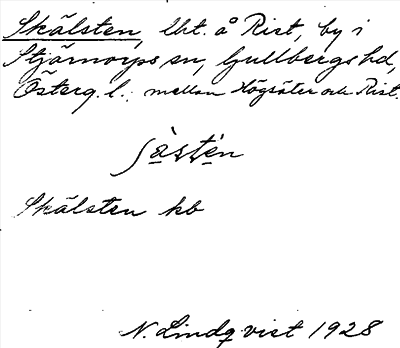 Skälsten, lht. å Rist, by i
Stjärnorps sn, Gullbergs hd,
Österg. l.; mellan Högsäter och Rist.
Skälsten kb
N. Lindqvist 1928